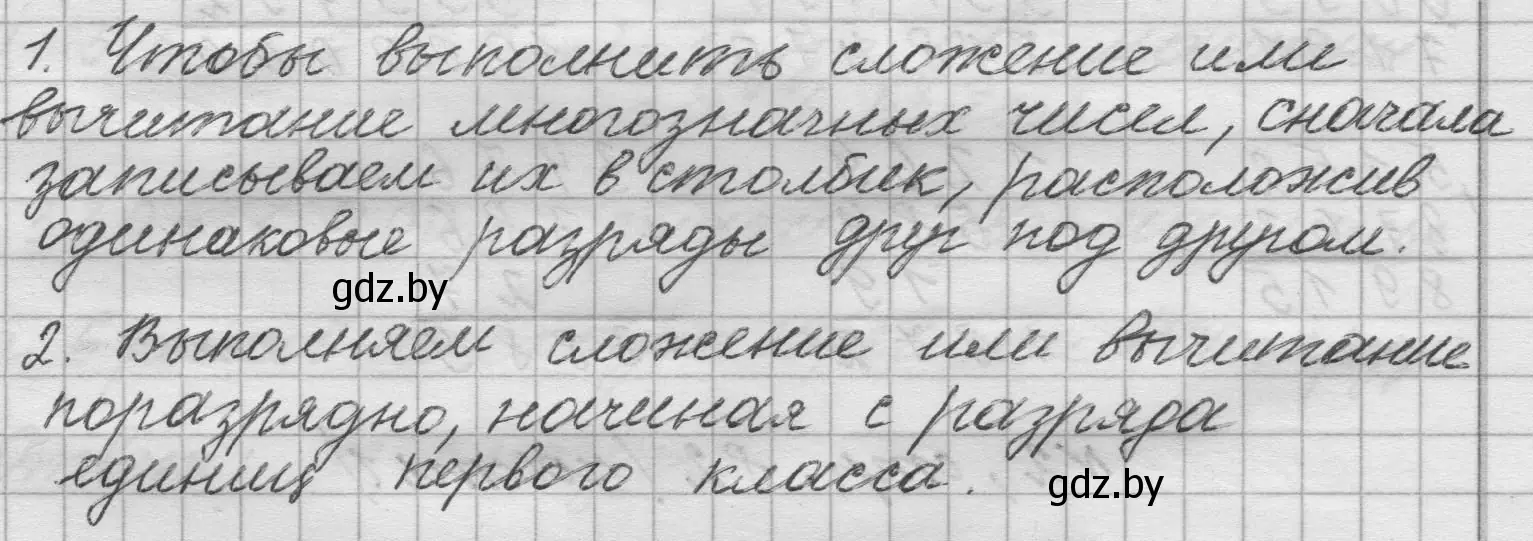 1. Чтобы выполнить сложение или
вычитание многозначных чисел, сначала
записываем их в столбик, расположив
одинаковые разряды друг под другом.
gdz.by
2. Выполняем сложение или вычитание
поразрядно, начиная с разряда
единиц первого класса.
gdz.by